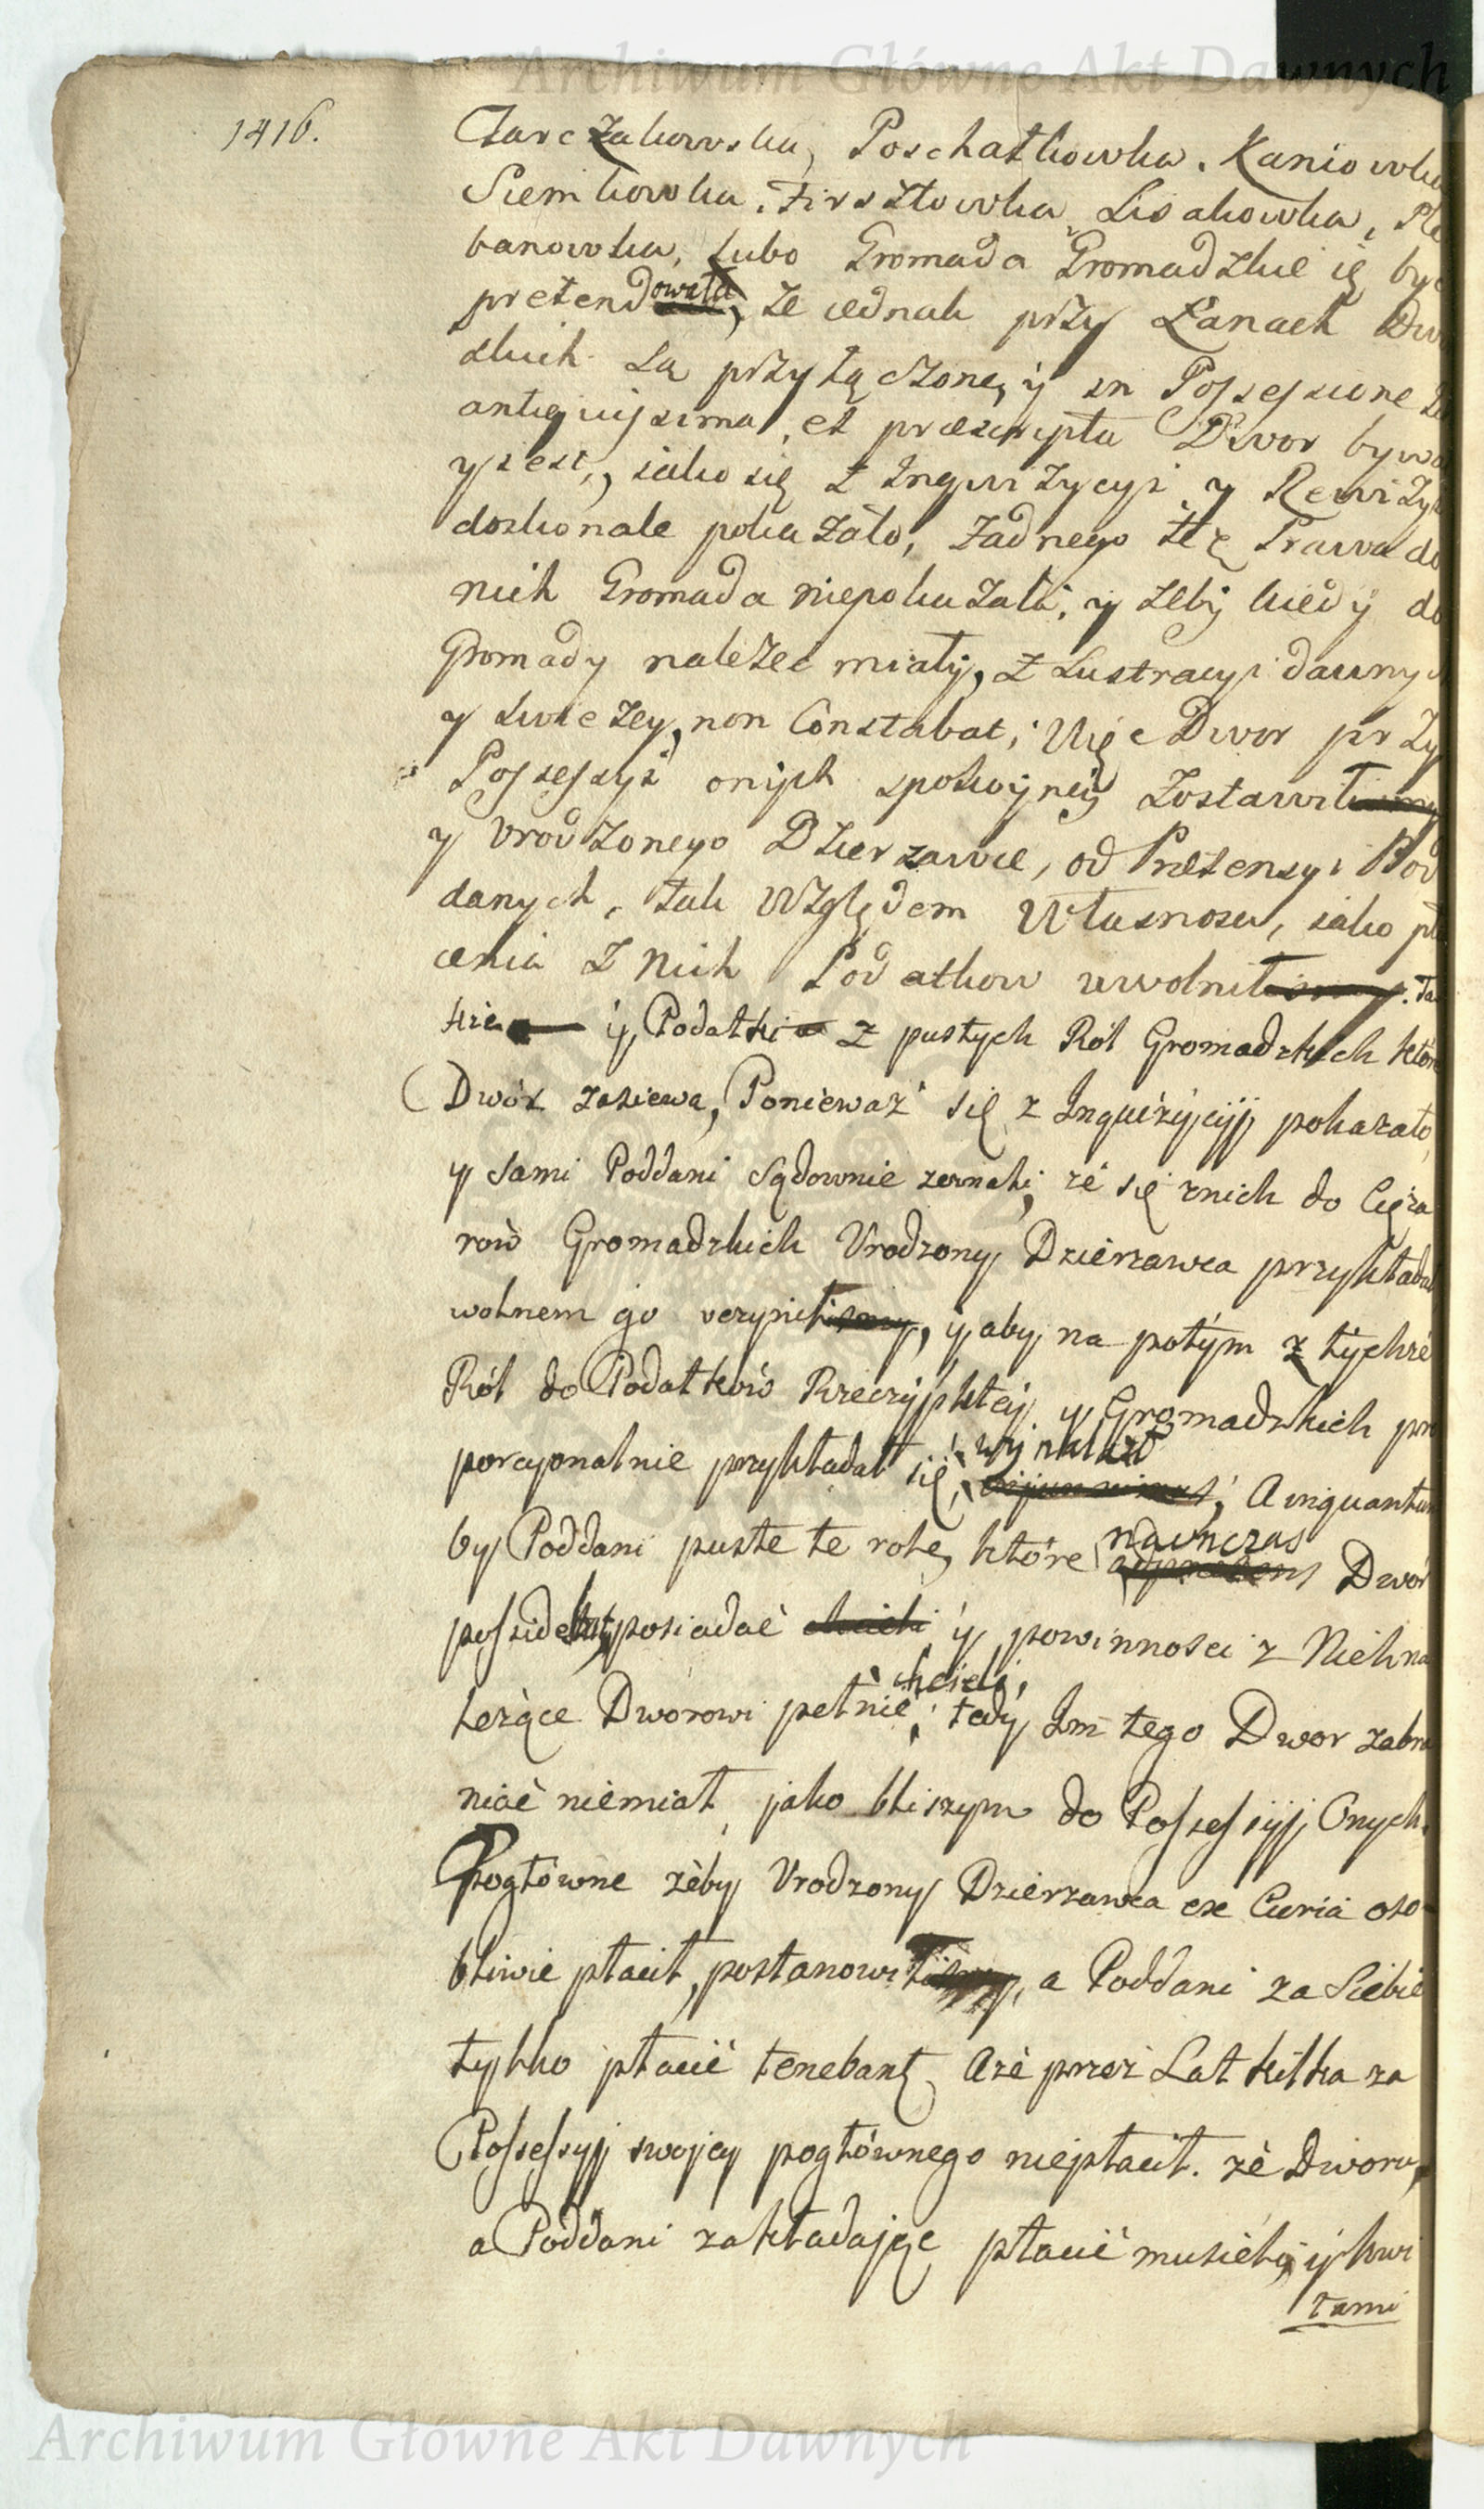 Archiwum Główne Akt Dawnych
1416.
Czarczakowska, Poschatkowka. Kaniowka
Siemkowka. Firsztowka, Lisakowka, Ple
banowska, lubo Gromada Gromadzkie ię być
pretendowała, że iednak przy Łanach Dwo
skich są przyłączone, y in Possessione
antiquissima, et præscripta Dwor bywa
y iest, iako się z Inqwizycyi y Rewizyi
doskonale pokazało, żadnego też Prawa do
nich Gromada niepokazała, y żeby kiedy do
Gromady należeć miały, z Lustracyi dawnych
y swieżey, non Constabat; Więc Dwor przy
Possessyi onych spokoyney zostawił
y Vrodzonego Dzierzawcę, od Prætensyi Pod
danych, tak Względem Własnosci, iako pła
cenia z nich Podatkow uwolnił. Ta
kie y Podatki z pustych Ról Gromadzkich które
Dwór zasiewa, Ponieważ się z Inqwizycyi pokazało,
y sami Poddani Sądownie zeznali, że się z nich do Cięża
rów Gromadzkich Vrodzony Dzierzawca przykładał
wolnem go uczynił, y aby na potym z tychże
Ról do Podatków Rzeczypltey y Gromadzkich pro
porcyonalnie przykładał się, wynalazł; A inquantum
by Poddani puste te role, które nawnczas Dwór
possidebat, posiadać y powinnosci z Nich na
leżące Dworowi pełnić chcieli, tedy Im tego Dwor zabra
niać niemiał, jako bliszym do Possessyi Onych.
Pogłówne żeby Vrodzony Dzierzawca ex Curia oso
bliwie płacił, postanowił, a Poddani za Siebie
tylko płacić tenebant, Aże przez Lat kilka za
Possessyi swojey pogłównego niepłacił. ze Dworu,
a Poddani zakładając płacić musieli, y kwi
tami
Archiwum Główne Akt Dawnych